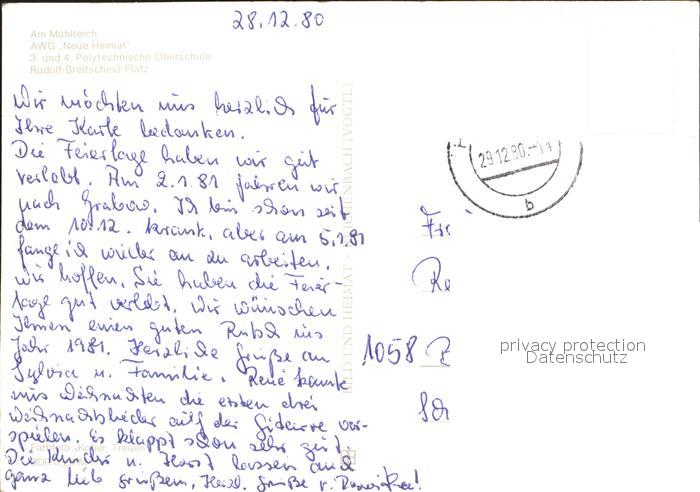 28.12.80
Am Mühlteich
AWG „Neue Heimat"
3. und 4. Polytechnische Oberschule
Rudolf-Breitscheid-Platz
Wir möchten uns herzlich für
Ihre Karte bedanken.
Die Feiertage haben wir gut
verlebt. Am 2.1.81 fahren wir
nach Grabow. Ich bin schon seit
dem 10.12. krank, aber am 5.1.81
fange ich wieder an zu arbeiten.
Wir hoffen, Sie haben die Feier-
tage gut verlebt. Wir wünschen
Ihnen einen guten Rutsch ins
Jahr 1981. Herzliche Grüße an
Sylvia u. Familie. René konnte
uns Weihnachten die ersten drei
Weihnachtslieder auf der Gitarre vor-
spielen. Es klappt schon sehr gut.
Die Kinder u. Horst lassen auch
ganz lieb grüßen. Herzl. Grüße v.
BILD UND HEIMAT · REICHENBACH (VOGTL)
29.12.80.-14
b
1058
privacy protection
Datenschutz